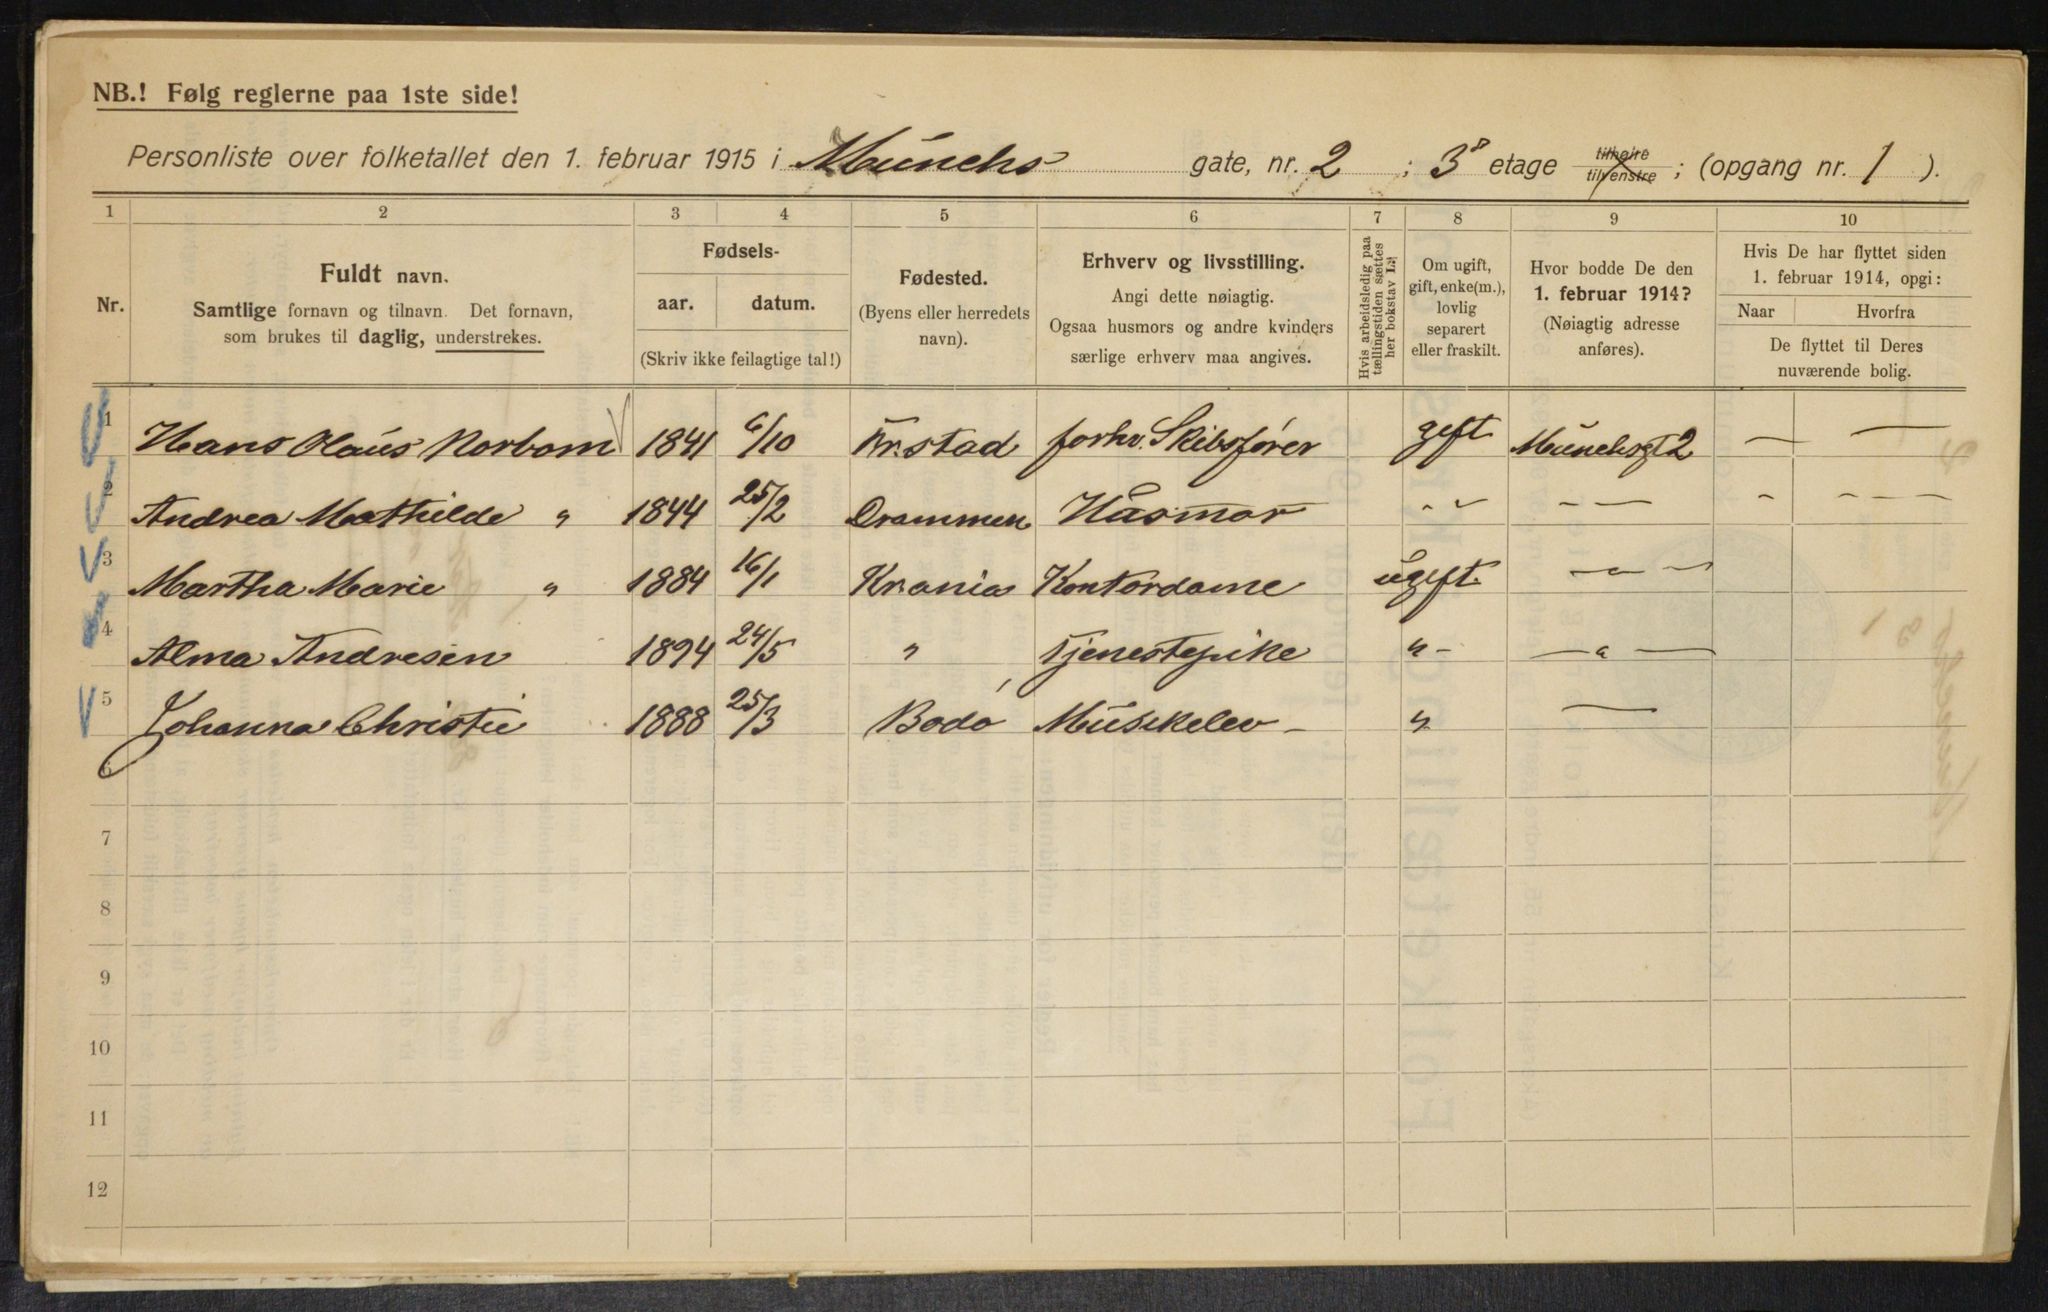 NB.! Følg reglerne paa 1ste side!
Personliste over folketallet den 1. februar 1915 i Munchs gate, nr. 2 ; 3⁸ etage tilhøire tilvenstre ; (opgang nr. 1 ).
1 2 3 4 5 6 7 8 9 10
Nr.
Fuldt navn.
Samtlige fornavn og tilnavn. Det fornavn,
som brukes til daglig, understrekes.
Fødsels-
aar. datum.
(Skriv ikke feilagtige tal!)
Fødested.
(Byens eller herredets
navn).
Erhverv og livsstilling.
Angi dette nøiagtig.
Ogsaa husmors og andre kvinders
særlige erhverv maa angives.
Hvis arbeidsledig paa
tællingstiden sættes
her bokstav L.
Om ugift,
gift, enke(m.),
lovlig
separert
eller fraskilt.
Hvor bodde De den
1. februar 1914?
(Nøiagtig adresse
anføres).
Hvis De har flyttet siden
1. februar 1914, opgi:
Naar Hvorfra
De flyttet til Deres
nuværende bolig.
1 Hans Olaus Norbom 1841 6/10 Kr.stad forhv. Skibsfører gift Munchsgt 2 — —
2 Andrea Mathilde " 1844 25/2 Drammen Husmor " " — — - — — —
3 Martha Marie " 1884 16/1 Kr.ania Kontordame ugift. — " —
4 Alma Andresen 1894 24/5 " Tjenestepike " - — " —
5 Johanna Christie 1888 25/3 Bodö Musikelev - " —
6
7
8
9
10
11
12